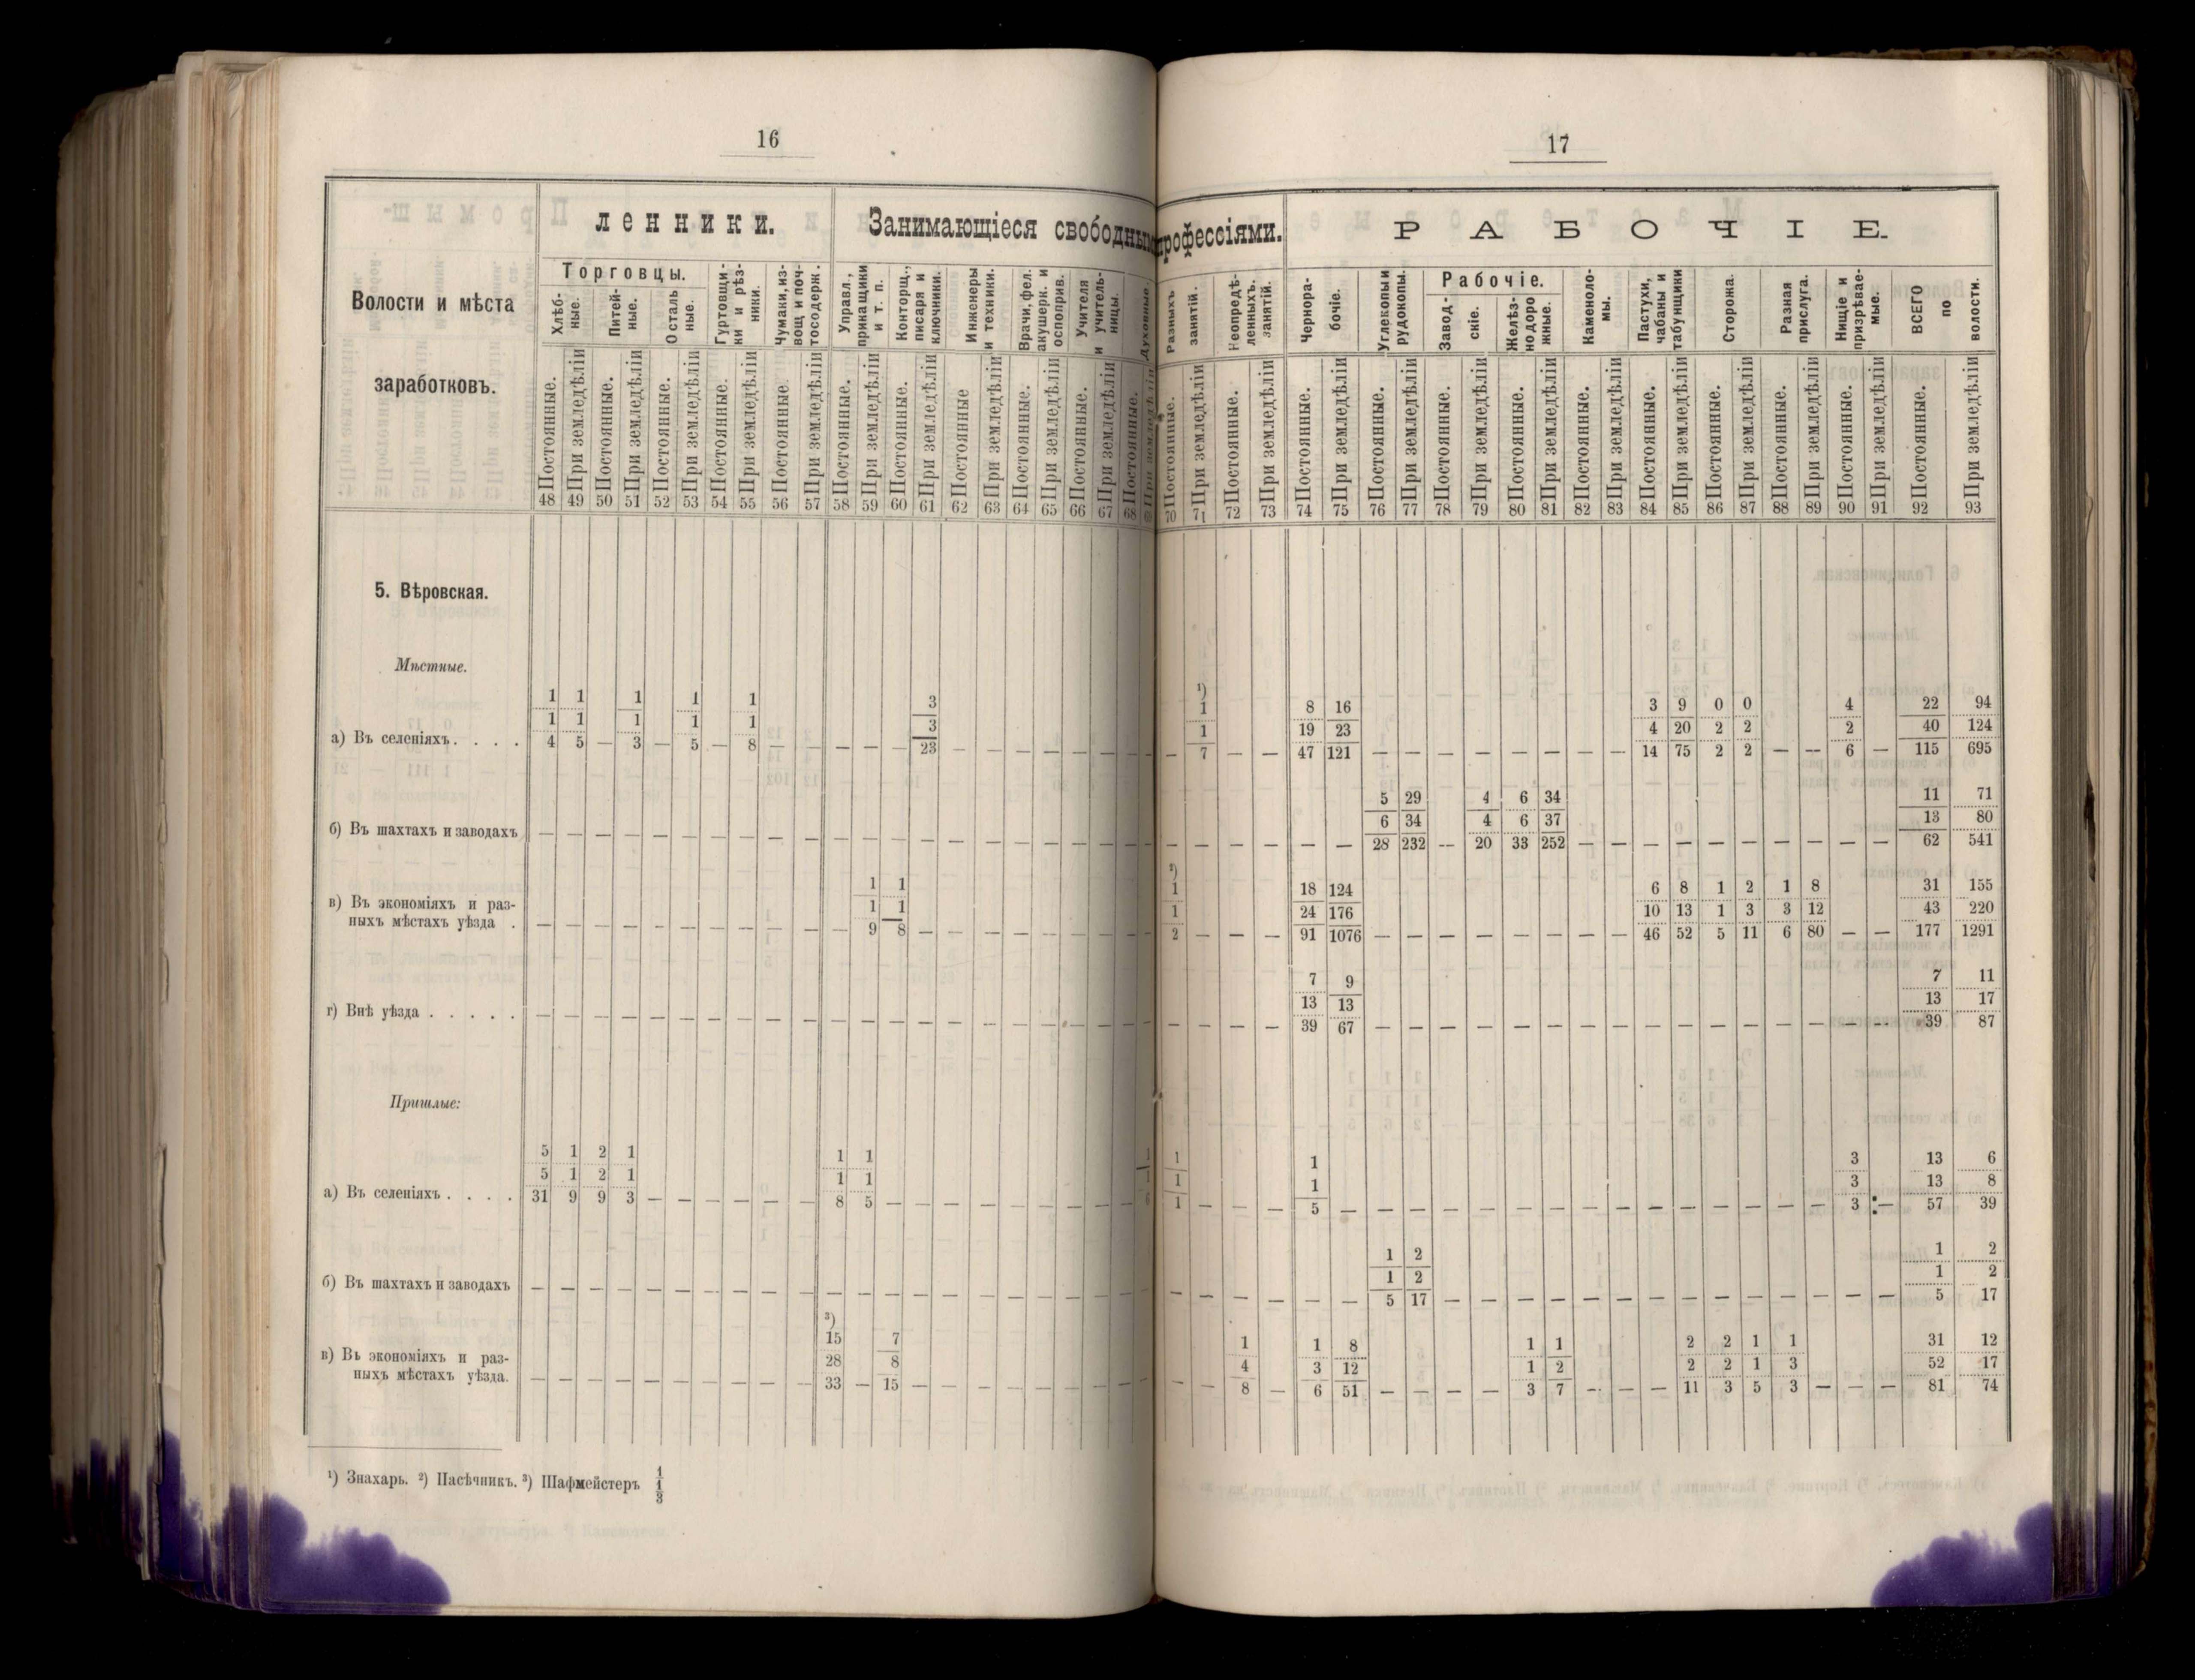 16
ленники.
Занимающіеся свободными
Волости и мѣста
заработковъ.
Торговцы.
Хлѣб-
ные.
Питей-
ные.
Осталь
ные.
Гуртовщи-
ки и рѣз-
ники.
Чумаки, из-
вощ и поч-
тосодерж.
Управл.,
приказщики
и т. п.
Конторщ.,
писаря и
ключники.
Инженеры
и техники.
Врачи, фел.
акушерк. и
оспоприв.
Учителя
и учитель-
ницы.
Духовные.
Постоянные. При земледѣліи Постоянные. При земледѣліи Постоянные. При земледѣліи Постоянные. При земледѣліи Постоянные При земледѣліи Постоянные. При земледѣліи Постоянные. При земледѣліи Постоянные При земледѣліи Постоянные. При земледѣліи Постоянные. При земледѣліи Постоянные. При земледѣліи
48 49 50 51 52 53 54 55 56 57 58 59 60 61 62 63 64 65 66 67 68 69
5. Вѣровская.
Мѣстные.
1 1 1 1 1 3
1 1 1 1 1 3
а) Въ селеніяхъ. . . . 4 5 — 3 — 5 — 8 — — — — — 23 — — — — — — — —
б) Въ шахтахъ и заводахъ — — — — — — — — — — — — — — — — — — — — — —
1 1
в) Въ экономіяхъ и раз- 1 1
ныхъ мѣстахъ уѣзда . — — — — — — — — — — — 9 8 — — — — — — — — —
г) Внѣ уѣзда . . . . . — — — — — — — — — — — — — — — — — — — — — —
Пришлые:
5 1 2 1 1 1 1
5 1 2 1 1 1 1
а) Въ селеніяхъ . . . . 31 9 9 3 — — — — — — 8 5 — — — — — — — — — 6
б) Въ шахтахъ и заводахъ — — — — — — — — — — — — — — — — — — — — — —
³)
15 7
в) Въ экономіяхъ и раз- 28 8
ныхъ мѣстахъ уѣзда. — — — — — — — — — — 33 — 15 — — — — — — — — —
¹) Знахарь. ²) Пасѣчникъ. ³) Шафмейстеръ 1
1
3
17
профессіями.
РАБОЧІЕ.
Разныхъ
занятій.
Неопредѣ-
ленныхъ.
занятій.
Чернора-
бочіе.
Углекопы и
рудокопы.
Рабочіе.
Завод-
скіе.
Желѣз-
нодоро
жные.
Каменоло-
мы.
Пастухи,
чабаны и
табунщики
Сторожа.
Разная
прислуга.
Нищіе и
призрѣвае-
мые.
ВСЕГО
по
волости.
Постоянные. При земледѣліи Постоянные. При земледѣліи Постоянные. При земледѣліи Постоянные. При земледѣліи Постоянные. При земледѣліи Постоянные. При земледѣліи Постоянные. При земледѣліи Постоянные. При земледѣліи Постоянные. При земледѣліи Постоянные. При земледѣліи Постоянные. При земледѣліи Постоянные. При земледѣліи
70 71 72 73 74 75 76 77 78 79 80 81 82 83 84 85 86 87 88 89 90 91 92 93
¹)
1 8 16 3 9 0 0 4 22 94
1 19 23 4 20 2 2 2 40 124
— 7 — — 47 121 — — — — — — — — 14 75 2 2 — — 6 — 115 695
5 29 4 6 34 11 71
6 34 4 6 37 13 80
— — — — — — 28 232 — 20 33 252 — — — — — — — — — — 62 541
²)
1 18 124 6 8 1 2 1 8 31 155
1 24 176 10 13 1 3 3 12 43 220
2 — — — 91 1076 — — — — — — — — 46 52 5 11 6 80 — — 177 1291
7 9 7 11
13 13 13 17
— — — — 39 67 — — — — — — — — — — — — — — — — 39 87
1 1 3 13 6
1 1 3 13 8
1 — — — 5 — — — — — — — — — — — — — — — 3 — 57 39
1 2 1 2
1 2 1 2
— — — — — — 5 17 — — — — — — — — — — — — — — 5 17
1 1 8 1 1 2 2 1 1 31 12
4 3 12 1 2 2 2 1 3 52 17
— — 8 — 6 51 — — — — 3 7 — — — 11 3 5 3 — — — 81 74